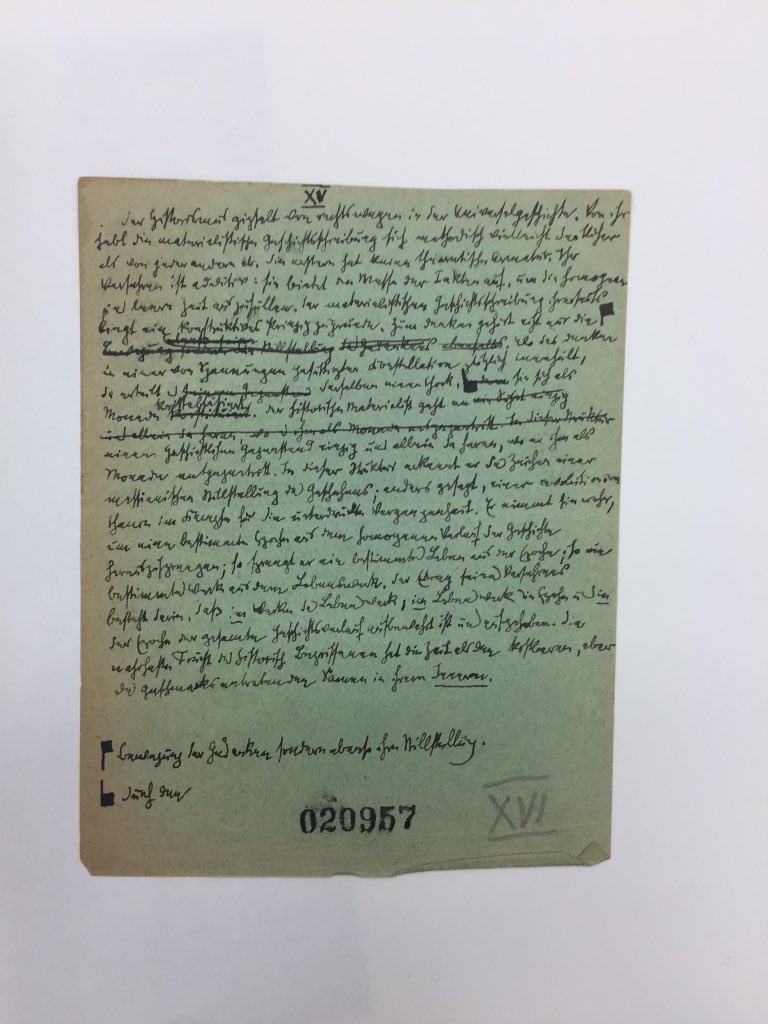 XV
Der Historismus gipfelt von rechtswegen in der Universalgeschichte. Von ihr
hebt die materialistische Geschichtsschreibung sich methodisch vielleicht deutlicher
als von jeder andern ab. Die erstere hat keine theoretische Armatur. Ihr
Verfahren ist additiv: sie bietet die Masse der Fakten auf, um die homogene
und leere Zeit auszufüllen. Der materialistischen Geschichtsschreibung ihrerseits
liegt ein konstruktives Prinzip zugrunde. Zum Denken gehört nicht nur die
Bewegung Stillstellung des Gedankens ebenfalls. Wo das Denken
in einer von Spannungen gesättigten Konstellation plötzlich innehält,
da erteilt es derselben einen Chock, sie sich als
Monade kristallisiert. Der historische Materialist geht an
und allein da heran, wo er ihm als Monade entgegentritt. In dieser Struktur
einen geschichtlichen Gegenstand einzig und allein da heran, wo er ihm als
Monade entgegentritt. In dieser Struktur erkennt er das Zeichen einer
messianischen Stillstellung des Geschehens; anders gesagt, einer revolutionären
Chance im Kampfe für die unterdrückte Vergangenheit. Er nimmt sie wahr,
um eine bestimmte Epoche aus dem homogenen Verlauf der Geschichte
herauszusprengen; so sprengt er ein bestimmtes Leben aus der Epoche; so ein
bestimmtes Werk aus dem Lebenswerk. Der Ertrag seines Verfahrens
besteht darin, daß im Werke das Lebenswerk, im Lebenswerk die Epoche und in
der Epoche der gesamte Geschichtsverlauf aufbewahrt ist und aufgehoben. Die
nahrhafte Frucht des historisch Begriffenen hat die Zeit als den kostbaren, aber
des Geschmacks entratenden Samen in ihrem Innern.
Bewegung der Gedanken sondern ebenso ihre Stillstellung.
durch den
020957
XVI